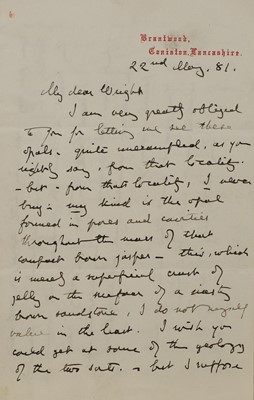 Brantwood,
Coniston, Lancashire.
22nd May. 81.
My dear Wright
I am very greatly obliged
to you for letting me see these
opals. quite unexampled, as you
rightly say, from that locality.
- but - from that locality, I never
buy - my kind is the opal
formed in pores and cavities
throughout the mass of that
compact brown jasper - this, which
is merely a superficial crust of
jelly on the surface of a nasty
brown sandstone, I do not myself
value in the least. I wish you
could get at some of the geology
of the two sorts. - but I suppose